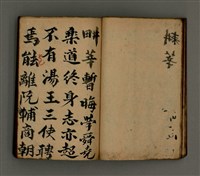 畊莘暫晦學舜堯
樂道終身志亦超
不有湯王三使聘
焉能離阮輔商朝
畊莘